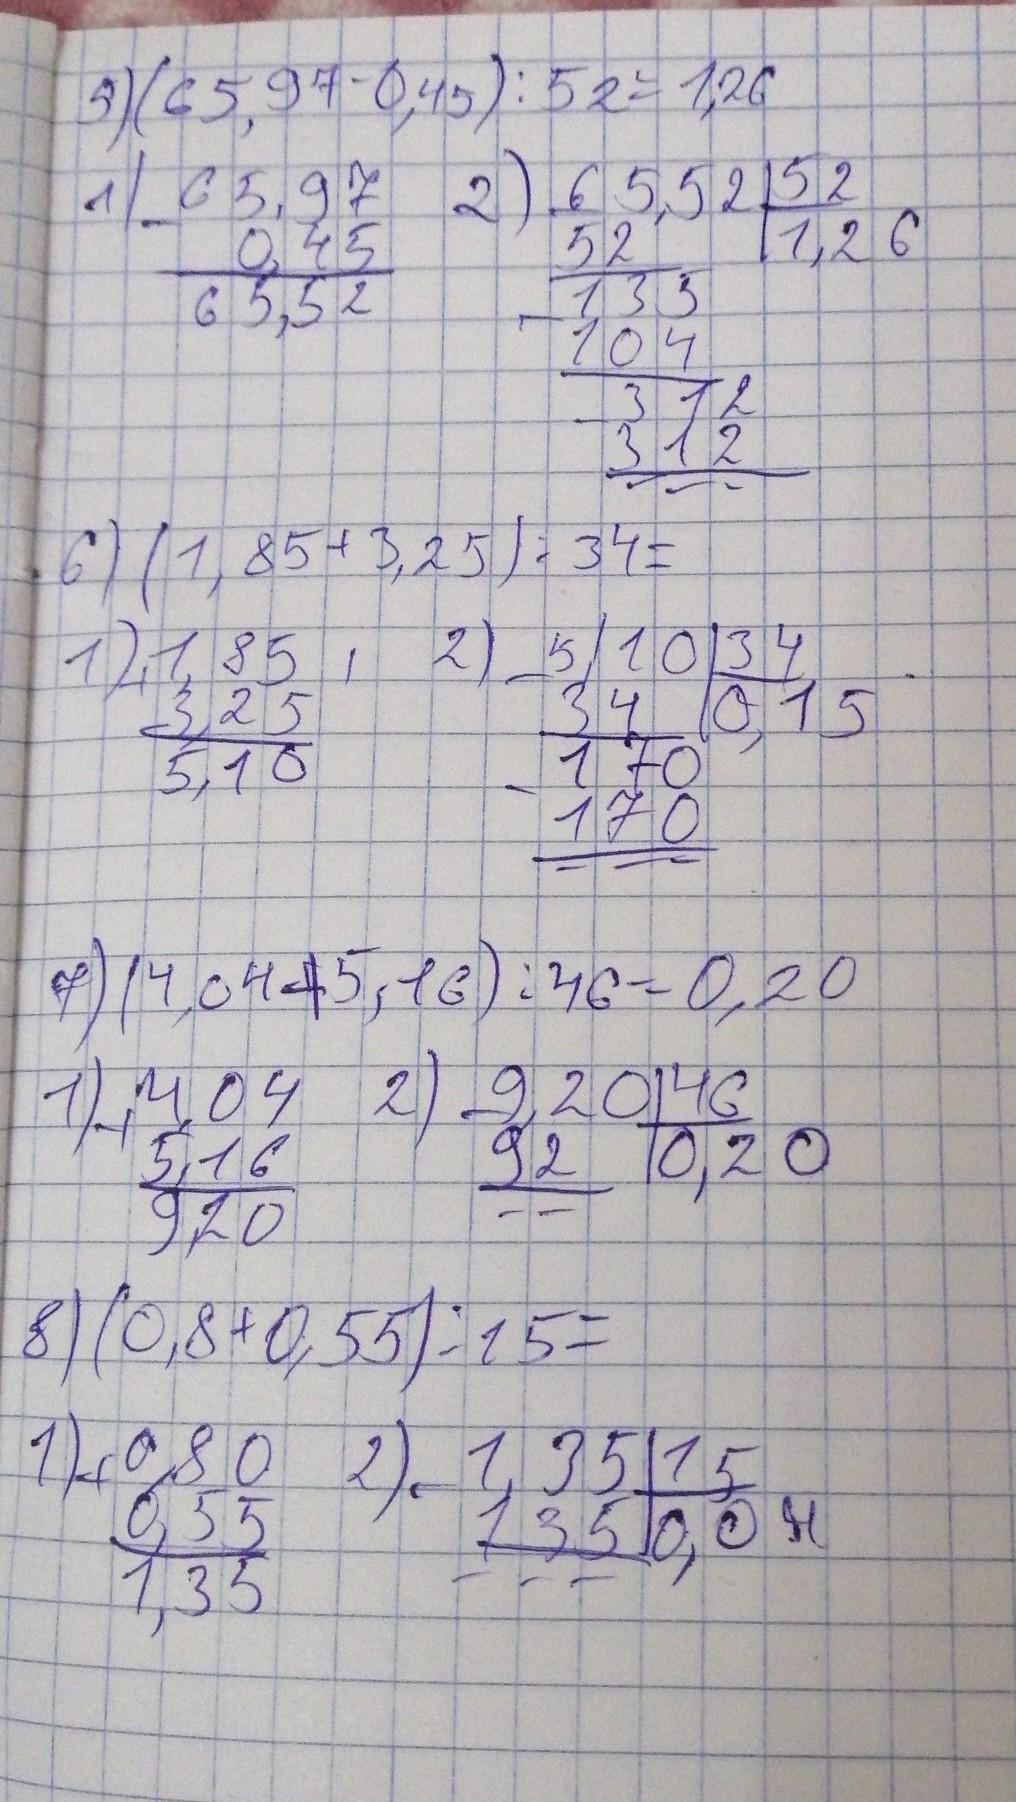 5) (65,97-0,45):52=1,26
1) -65,97 2) -65,52|52
0,45 52 |1,26
65,52 -133
104
-312
312
6) (1,85+3,25):34=
1) +1,85 2) -5,10|34
3,25 34 |0,15
5,10 -170
170
7) (4,04+5,16):46=0,20
1) +4,04 2) -9,20|46
5,16 92 |0,20
9,20
8) (0,8+0,55):15=
1) +0,80 2) -1,35|15
0,55 135|0,0
1,35